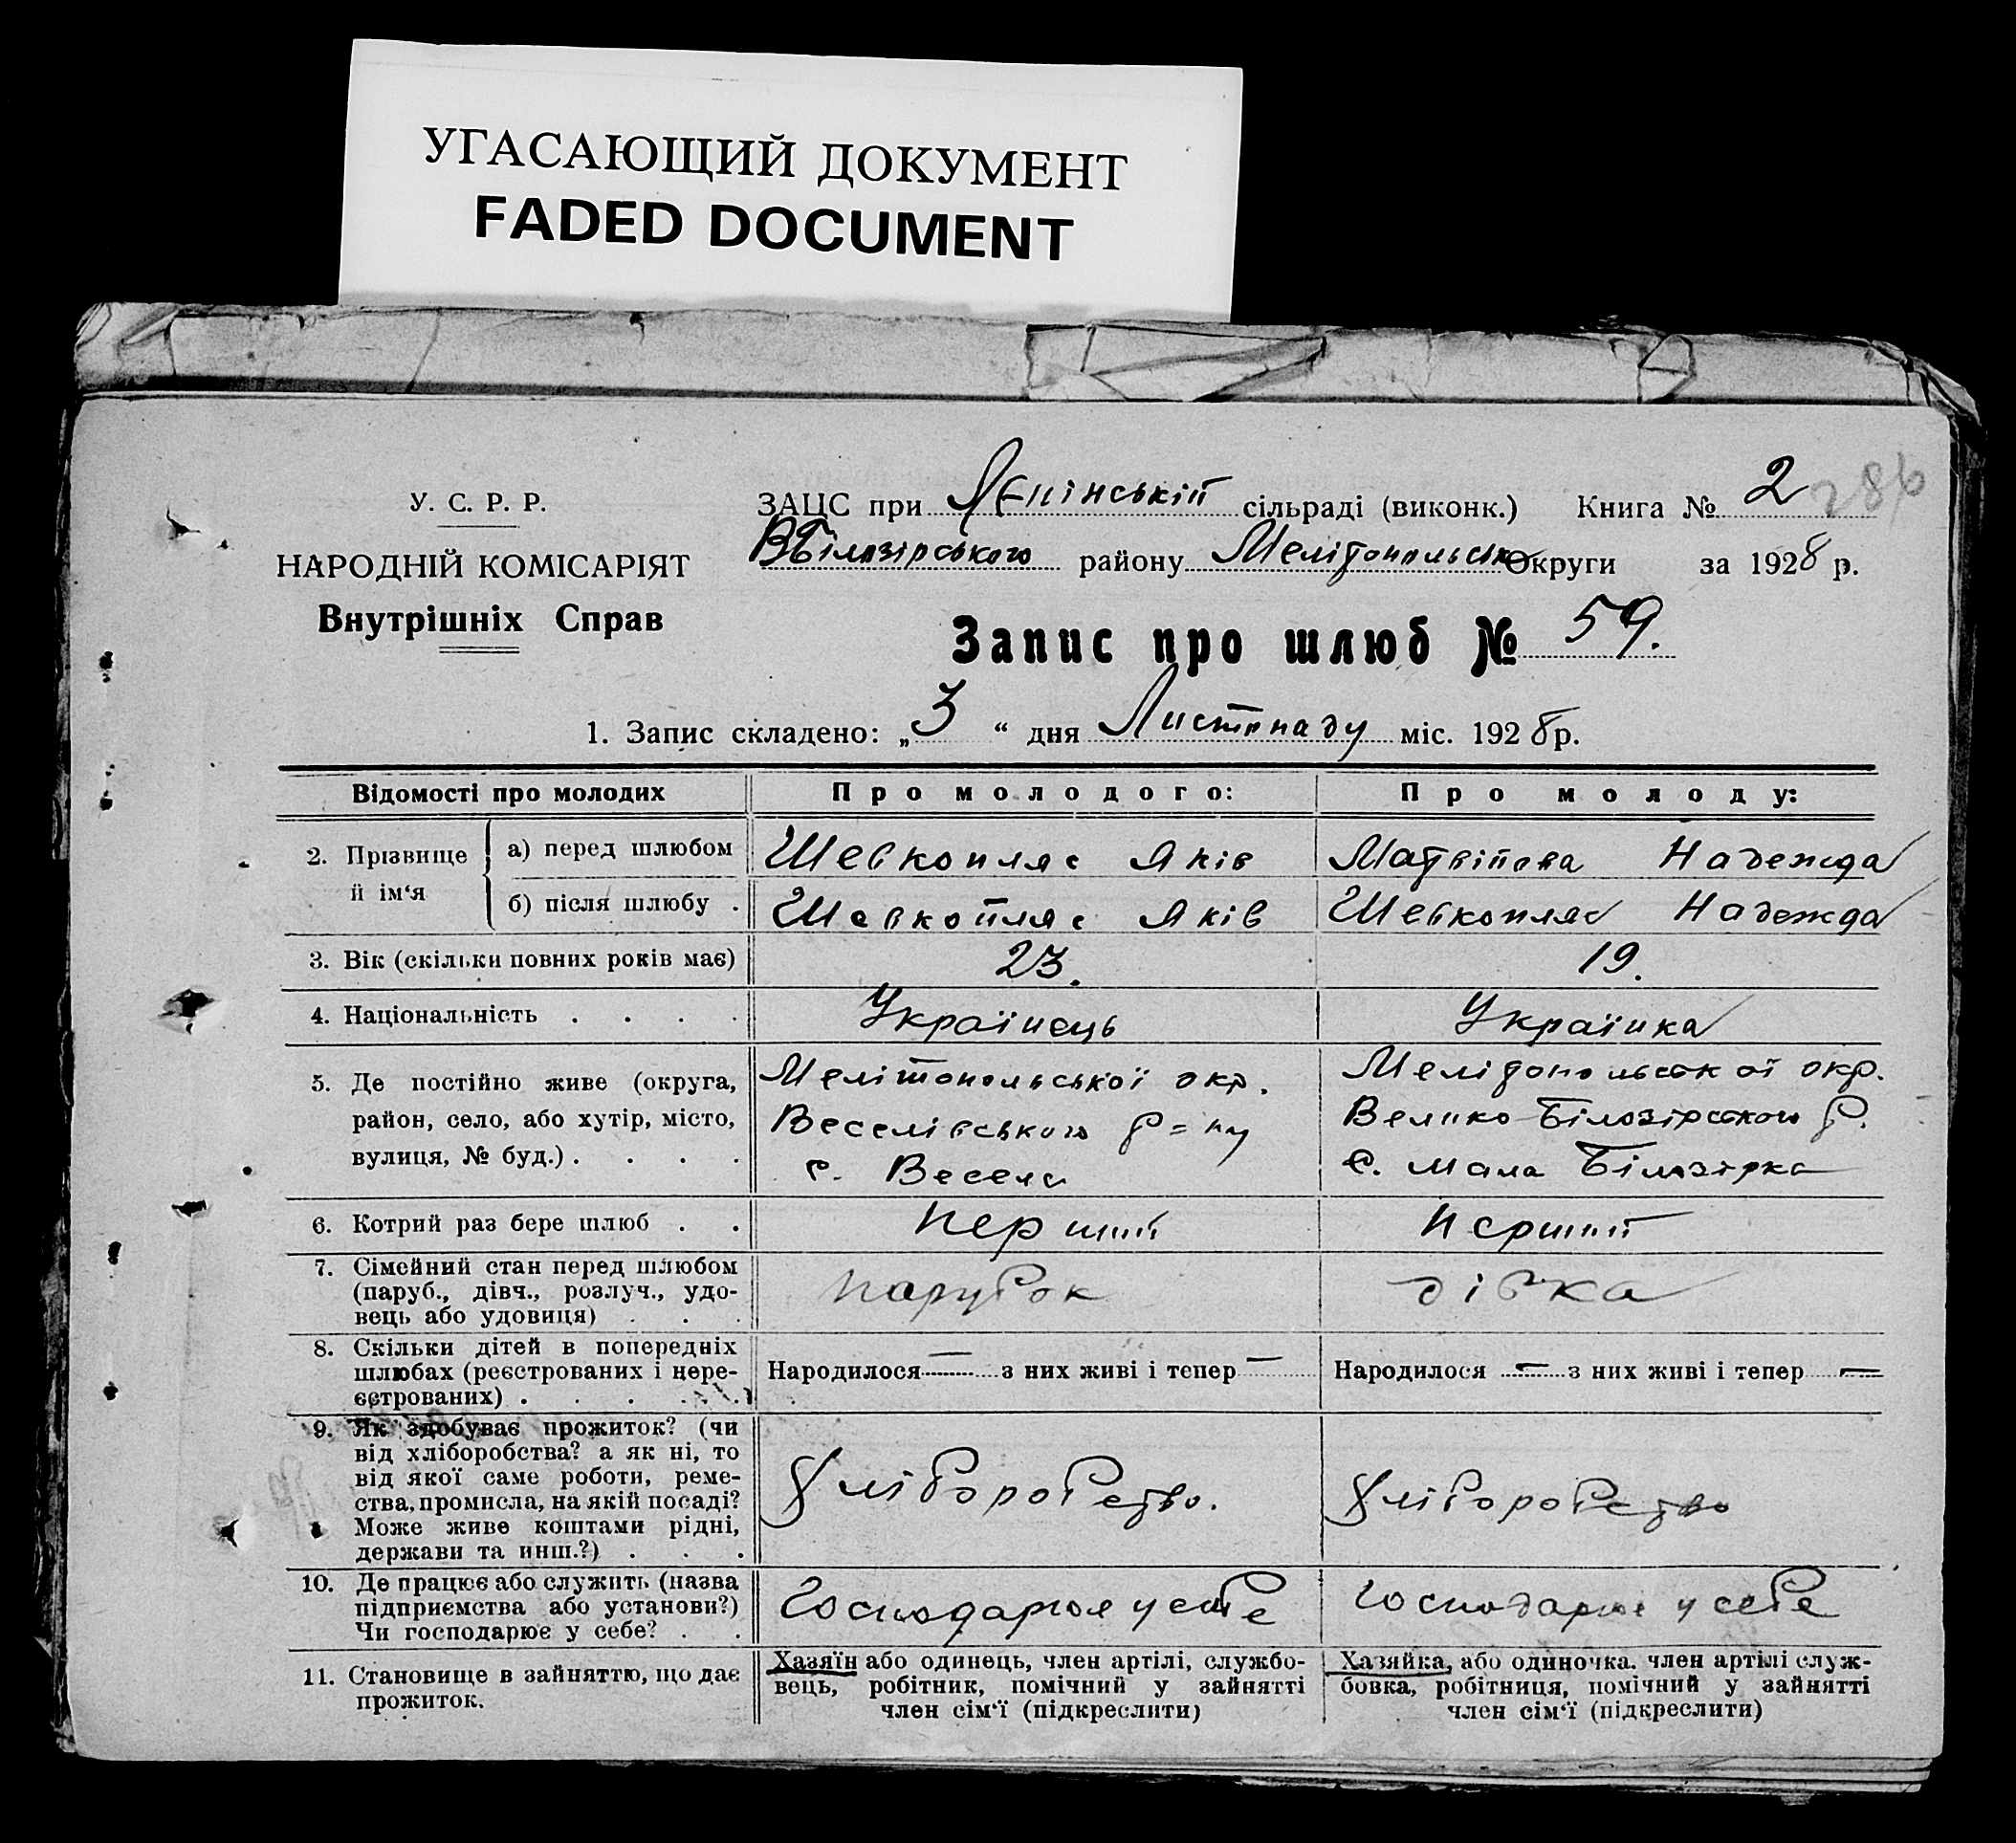 УГАСАЮЩИЙ ДОКУМЕНТ
FADED DOCUMENT
У. С. Р. Р.
НАРОДНІЙ КОМІСАРІЯТ
Внутрішніх Справ
ЗАЦС при Ленінській сільраді (виконк.) Книга № 2 286
ВБілозірського району Мелітопольськ Округи за 1928 р.
Запис про шлюб № 59.
1. Запис складено: „3“ дня Листопаду міс. 1928 р.
Відомості про молодих Про молодого: Про молоду:
2. Прізвище й ім‘я
а) перед шлюбом Шевкопляс Яків Матвіпова Надежда
б) після шлюбу . Шевкопляс Яків Шевкопляс Надежда
3. Вік (скільки повних років має) 23. 19.
4. Національність . . . . Українець Українка
5. Де постійно живе (округа,
район, село, або хутір, місто,
вулиця, № буд.) . . . .
Мелітопольської окр.
Веселівського р=ну
с. Веселе
Мелітопольської окр.
Велико-Білозірського р.
с. Мала Білозірка
6. Котрий раз бере шлюб . . перший перший
7. Сімейний стан перед шлюбом
(паруб., дівч., розлуч., удо-
вець або удовиця) . . .
парубок дівка
8. Скільки дітей в попередніх
шлюбах (реєстрованих і нере-
єстрованих) . . . . . .
Народилося — з них живі і тепер —
Народилося — з них живі і тепер —
9. Як здобуває прожиток? (чи
від хліборобства? а як ні, то
від якої саме роботи, реме-
ства, промисла, на якій посаді?
Може живе коштами рідні,
держави та инш.?) . . .
Хліборобство.
Хліборобство
10. Де працює або служить (назва
підприємства або установи?)
Чи господарює у себе? . .
Господарює у себе
Господарює у себе
11. Становище в зайняттю, що дає
прожиток.
Хазяїн або одинець, член артілі, службо-
вець, робітник, помічний у зайнятті
член сім‘ї (підкреслити)
Хазяйка, або одиночка. член артілі служ-
бовка, робітниця, помічний у зайнятті
член сім‘ї (підкреслити)